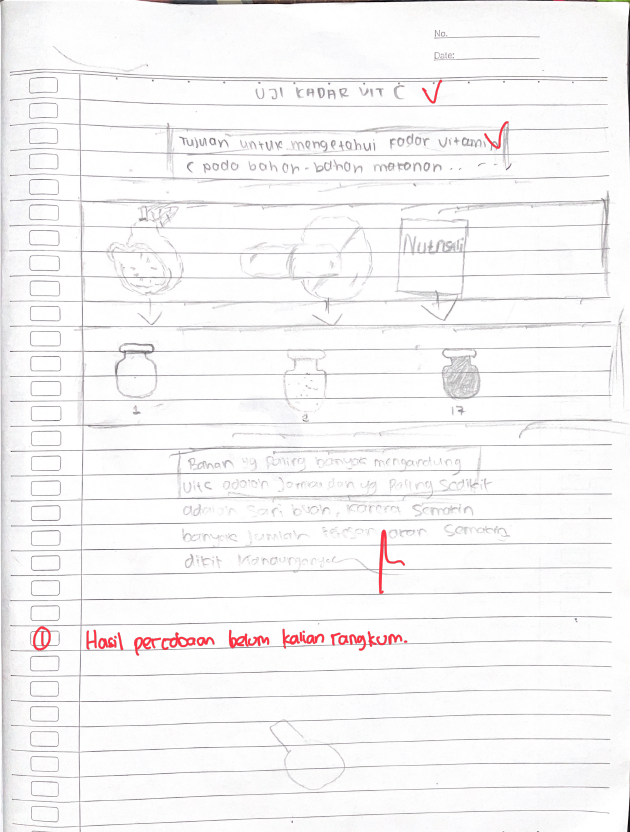 No.
Date:
UJI KADAR VIT C
Tujuan untuk mengetahui kadar vitamin
C pada bahan-bahan makanan...
Nutrisali
1
2
17
Bahan yg paling banyak mengandung
Vit C adalah Jambu dan yg paling Sedikit
adalah Sari buah, karena Semakin
banyak jumlah tetesan akan Semakin
dikit Kandungannya
1 Hasil percobaan belum kalian rangkum.